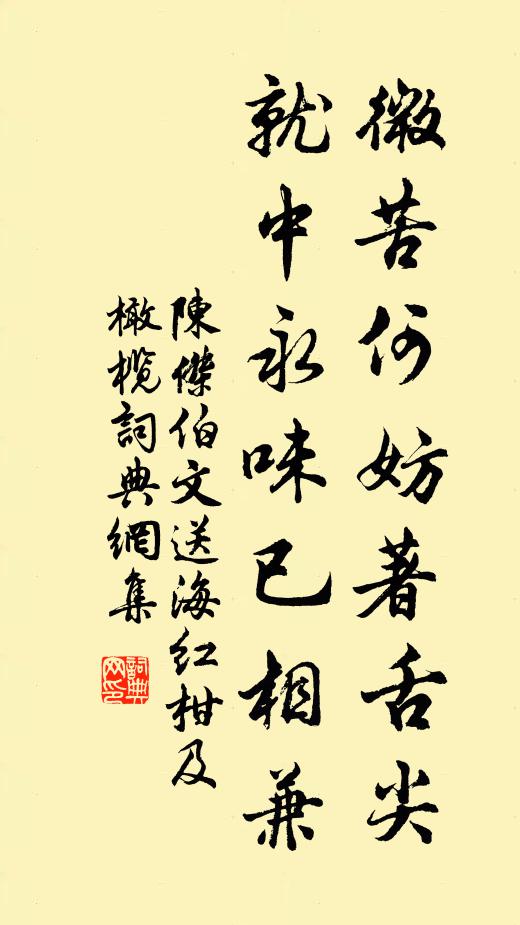 微苦何妨著舌尖
就中永味已相兼
陳傑伯文送海紅柑及
橄欖詞典網集
詞典網印